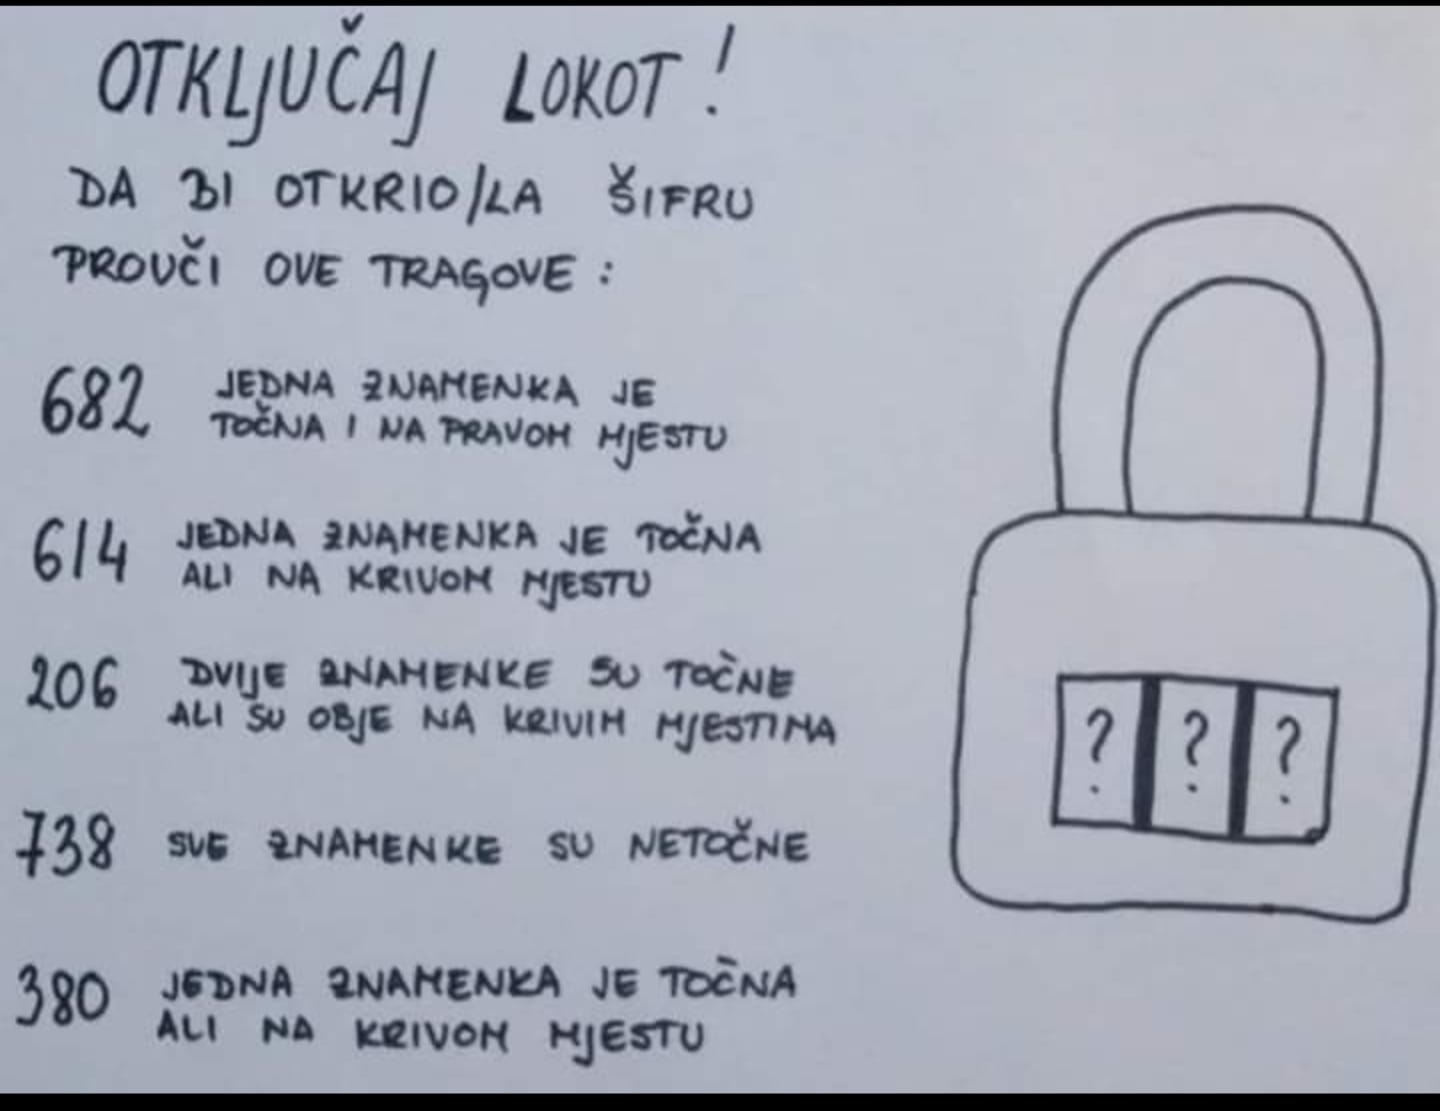 OTKLJUČAJ LOKOT!
DA BI OTKRIO/LA ŠIFRU
PROUČI OVE TRAGOVE:
682 JEDNA ZNAMENKA JE
TOČNA I NA PRAVOM MJESTU
614 JEDNA ZNAMENKA JE TOČNA
ALI NA KRIVOM MJESTU
206 DVIJE ZNAMENKE SU TOČNE
ALI SU OBJE NA KRIVIM MJESTIMA
738 SVE ZNAMENKE SU NETOČNE
380 JEDNA ZNAMENKA JE TOČNA
ALI NA KRIVOM MJESTU
? ? ?